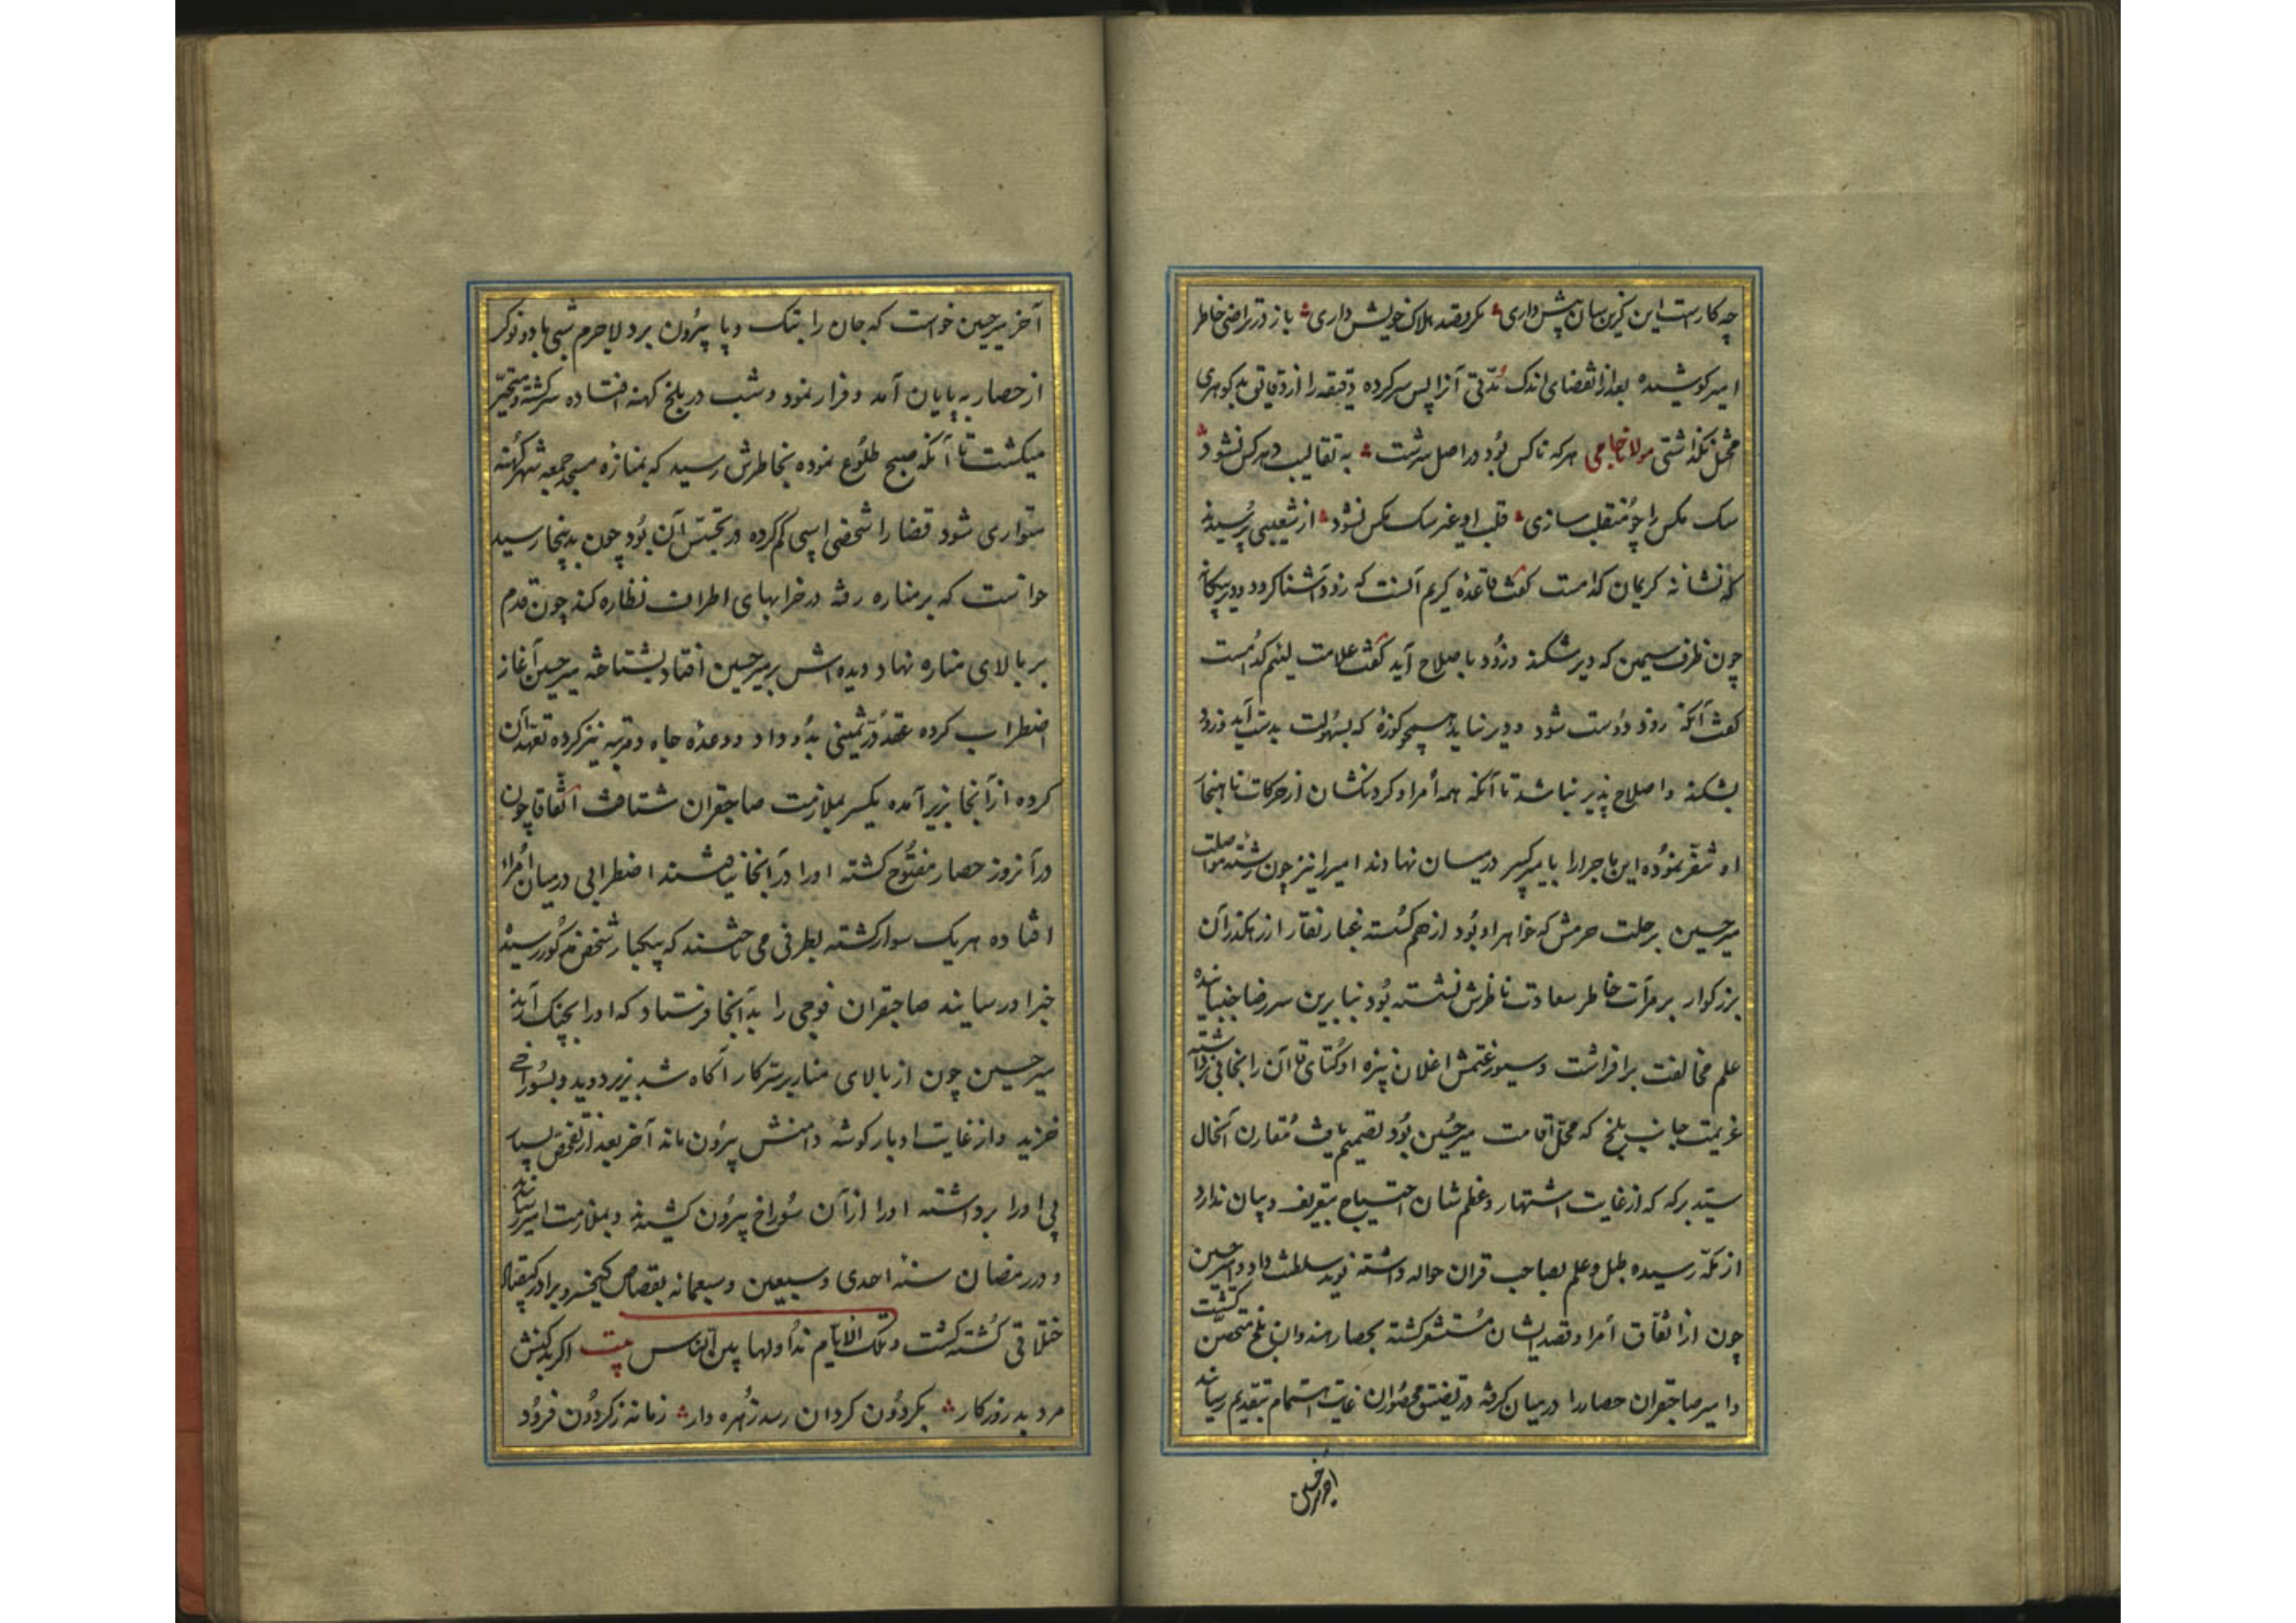 چه کارست این کزین سان پیش داری ؞ مکر قصد هلاک خویش داری ؞ باز در تراضی خاطر
امیر کوشیده بعد از انقضای اندک مدتی آنرا پس سر کرده دقیقه را از دقایق بدکوهری
نکذاشتی مولانا جامی هرکه ناکس بود در اصل سرشت ؞ به تقالیب دهر کس نشود ؞
سک مکس را چو منقلب سازی ؞ قلب او غیر سک مکس نشود ؞ از شعیبی پرسیدند
که نشانه کریمان کدامست کفت قاعده کریم آنست که زود آشنا کردد و دیر بیکانه
چون ظرف سیمین که دیر شکند و زود باصلاح آید کفت علامت لئیم کدامست
کفت آنکه زود دوست شود و دیر نیاید همچو کوزه که بسهولت بدست آید و زود
بشکند و اصلاح پذیر نباشد تا آنکه همه امرا و کردنکشان از حرکات ناهنجار
او متنفر نموده این ماجرا را با میر کبیر در میان نهادند امیر را نیز چون رشته مواصلت
میرحسین برحلت حرمش که خواهر او بود از هم کسسته غبار نقار از رهکذر آن
بزرکوار بر مرآت خاطر سعادت ناظرش نشسته بود بنا برین سر رضا جنبانیده
علم مخالفت برافراشت و سیورغتمش اغلان نبیره اوکتای قاآن را بخانی برداشته
عزیمت جانب بلخ که محل اقامت میرحسین بود تصمیم یافت مقارن آنحال
سید برکه که از غایت اشتهار و عظم شان احتیاج بتعریف و بیان ندارد
از مکه رسیده طبل و علم بصاحب قران حواله داشته نوید سلطنت داد و میرحسین
چون از اتفاق امرا و قصد ایشان مستشعر کشته بحصار هندوان بلخ متحصن کشت
و امیر صاحبقران حصار را در میان کرفته در تضییق محصوران غایت اهتمام بتقدیم رسانید
آخر میرحسین
آخر میرحسین خواست که جان را بتک و پا بیرون برد لاجرم شبی با دو نوکر
از حصار به پایان آمد و فرار نمود و شب در بلخ کهنه افتاده سرکشته و متحیر
میکشت تا آنکه صبح طلوع نموده بخاطرش رسید که بمنازه مسجد جمعه شهر کهنه
متواری شود قضا را شخصی اسپی کم کرده در تجسس آن بود چون بدینجا رسید
خواست که بر مناره رفته در خرابهای اطراف نظاره کند چون قدم
بر بالای مناره نهاد دیده اش بر میرحسین افتاد بشناخته میرحسین آغاز
اضطراب کرده عقد در ثمینی بدو داد و وعده جاه و مرتبه نیز کرده تعهد آن
کرده از آنجا بزیر آمده یکسر بملازمت صاحبقران شتافت اتفاقا چون
در آنروز حصار مفتوح کشته او را در آنجا نیافتند اضطرابی در میان امرا
افتاده هر یک سوار کشته بطرفی می تاختند که بیکبار شخص مذکور رسیده
خبر او رسانید صاحبقران فوجی را بدآنجا فرستاد که او را بچنک آرند
میرحسین چون از بالای منار بر سر کار آکاه شد بزیر دوید و بسوراخی
خزید و از غایت ادبار کوشه دامنش بیرون ماند آخر بعد از تفحص بسیار
پی او را برداشته او را از آن سوراخ بیرون کشیدند و بملازمت امیر رسانیدند
و در رمضان سنه احدی و سبعین و سبعمائه بقصاص کیخسرو برادر کیقباد
ختلانی کشته کشت و تلک الایام نداولها بین الناس بیت اکر بد کنش
مرد بد روزکار ؞ بکردون کردان رسد زهره وار ؞ زمانه ز کردون فرود